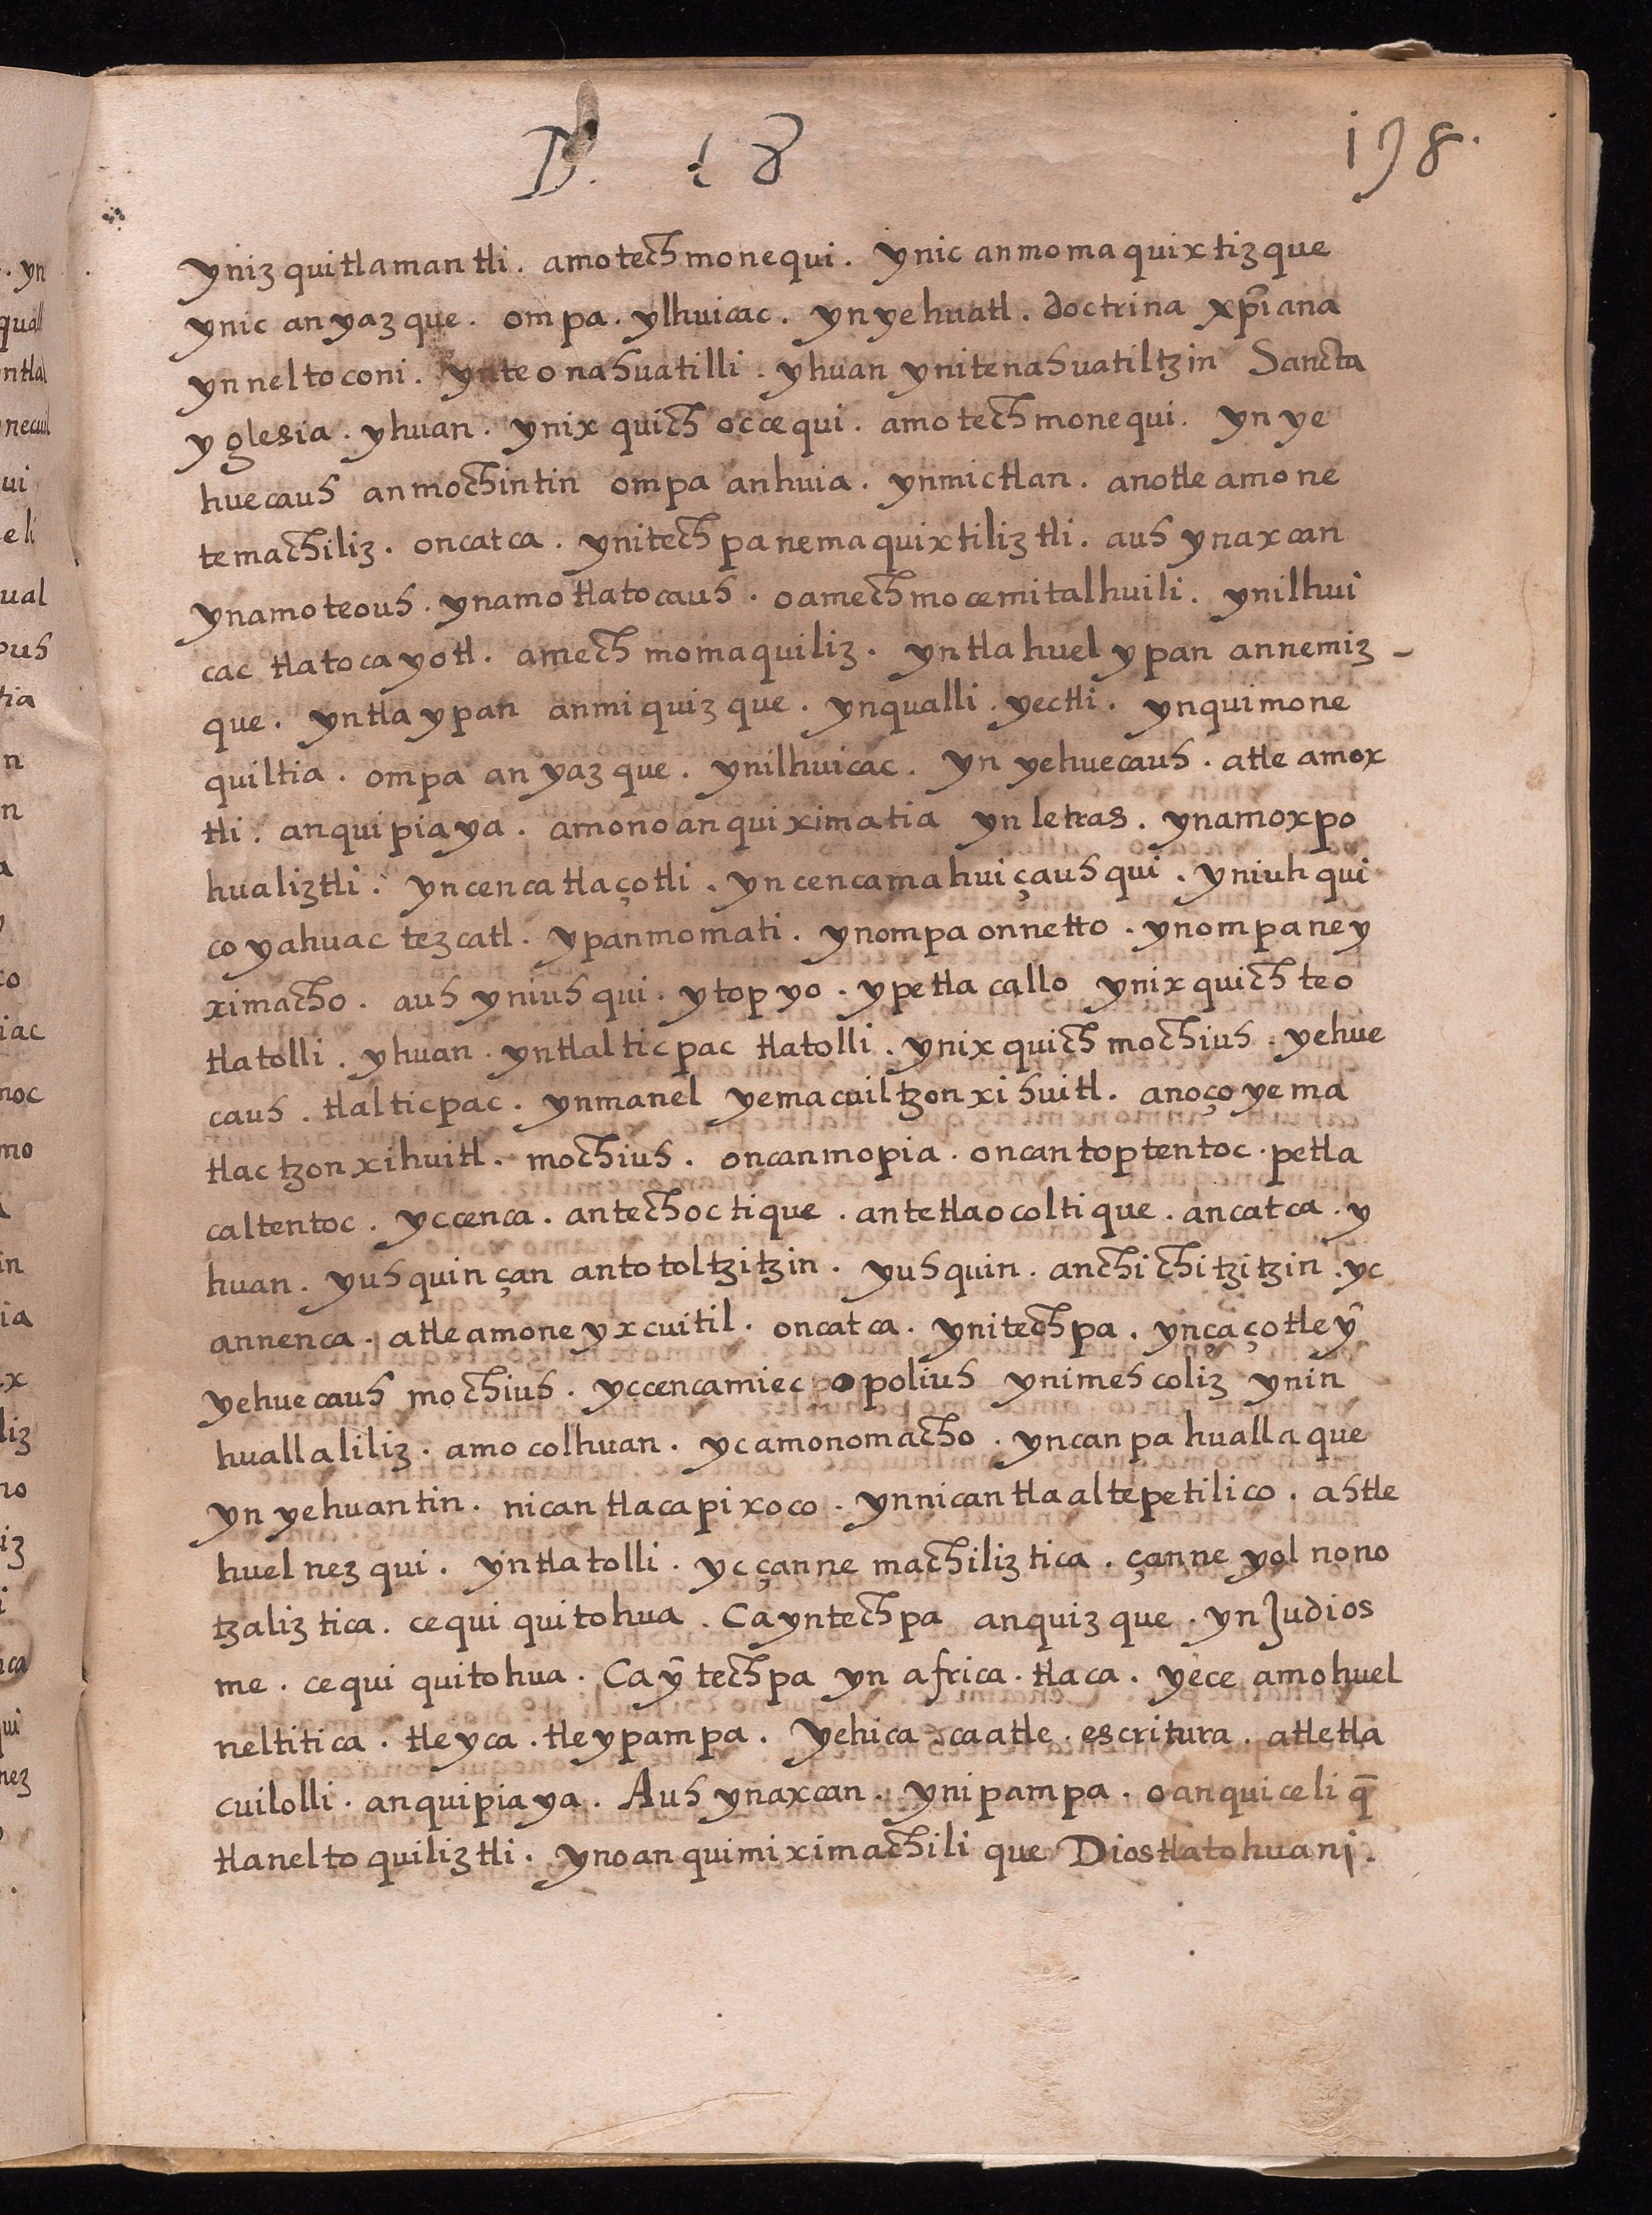 D. 18 198.
yniz quitlamantli. amotech monequi. ynic anmomaquixtizque
ynic anyazque. ompa. ylhuicac. ynyehuatl. doctrina xp̄iana
ynneltoconi. ynteonahuatilli. yhuan ynitenahuatiltzin Sancta
yglesia. yhuan. ynixquich occequi. amotech monequi. yn ye
huecauh anmochintin ompa anhuia. ynmictlan. anotle amone
temachiliz. oncatca. ynitechpa nemaquixtiliztli. auh ynaxcan
ynamoteouh. ynamotlatocauh. oamechmocemitalhuili. ynilhui
cac tlatocayotl. amech momaquiliz. yntlahuel ypan annemiz-
que. yntla ypan anmiquizque. ynqualli. yectli. ynquimone
quiltia. ompa anyazque. ynilhuicac. yn yehuecauh. atle amox
tli. anquipiaya. amono anquiximatia yn letras. ynamoxpo
hualiztli. yncenca tlaçotli. yncenca mahuiçauhqui. yniuh qui
coyahuac tezcatl. ypanmomati. ynompa onnetto. ynompa ney
ximacho. auh yniuhqui. ytopyo. ypetlacallo ynixquich teo
tlatolli. yhuan. yntlalticpac tlatolli. ynixquich mochiuh. yehue
cauh. tlalticpac. ynmanel yemacuiltzonxihuitl. anoço yema
tlactzonxihuitl. mochiuh. oncanmopia. oncantoptentoc. petla
caltentoc. yccenca. antechoctique. antetlaocoltique. ancatca. y
huan. yuhquin çan antotoltzitzin. yuhquin. anchichitzitzin. yc
annenca. atle amoneyxcuitil. oncatca. ynitechpa. ynçaçotleȳ
yehuecauh mochiuh. yccencamiec opoliuh ynimehcoliz ynin
huallaliliz. amocolhuan. ycamonomacho. yncanpa huallaque
yn yehuantin. nican tlacapixoco. ynnican tlaaltepetilico. ahtle
huel nezqui. yntlatolli. yc çanne machiliztica. çanne yolnono
tzaliztica. cequi quitohua. Ca yntechpa anquizque. yn Judios
me. cequi quitohua. Ca ȳtechpa yn africa. tlaca. yece amohuel
neltitica. tleyca. tleypampa. yehica caatle. escritura. atle tla
cuilolli. anquipiaya. Auh ynaxcan. ynipampa. oanquiceliq̄
tlaneltoquiliztli. ynoanquimiximachilique Dios tlatohuani.